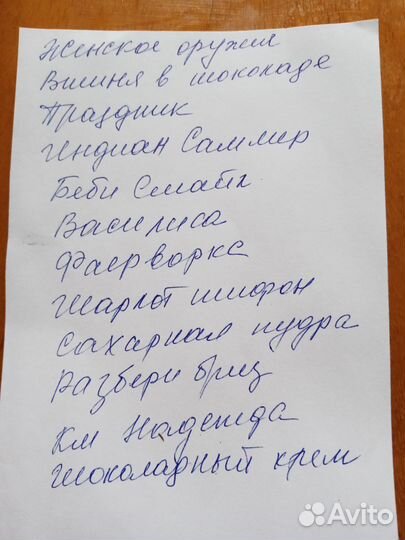 Женское оружия
Вишня в шоколаде
Праздник
Индиан Саммер
Беби Смайл
Василиса
Фаерворкс
Шарлот шифон
Сахарная пудра
Разбери бриз
Км Надежда
Шоколадный крем
Avito